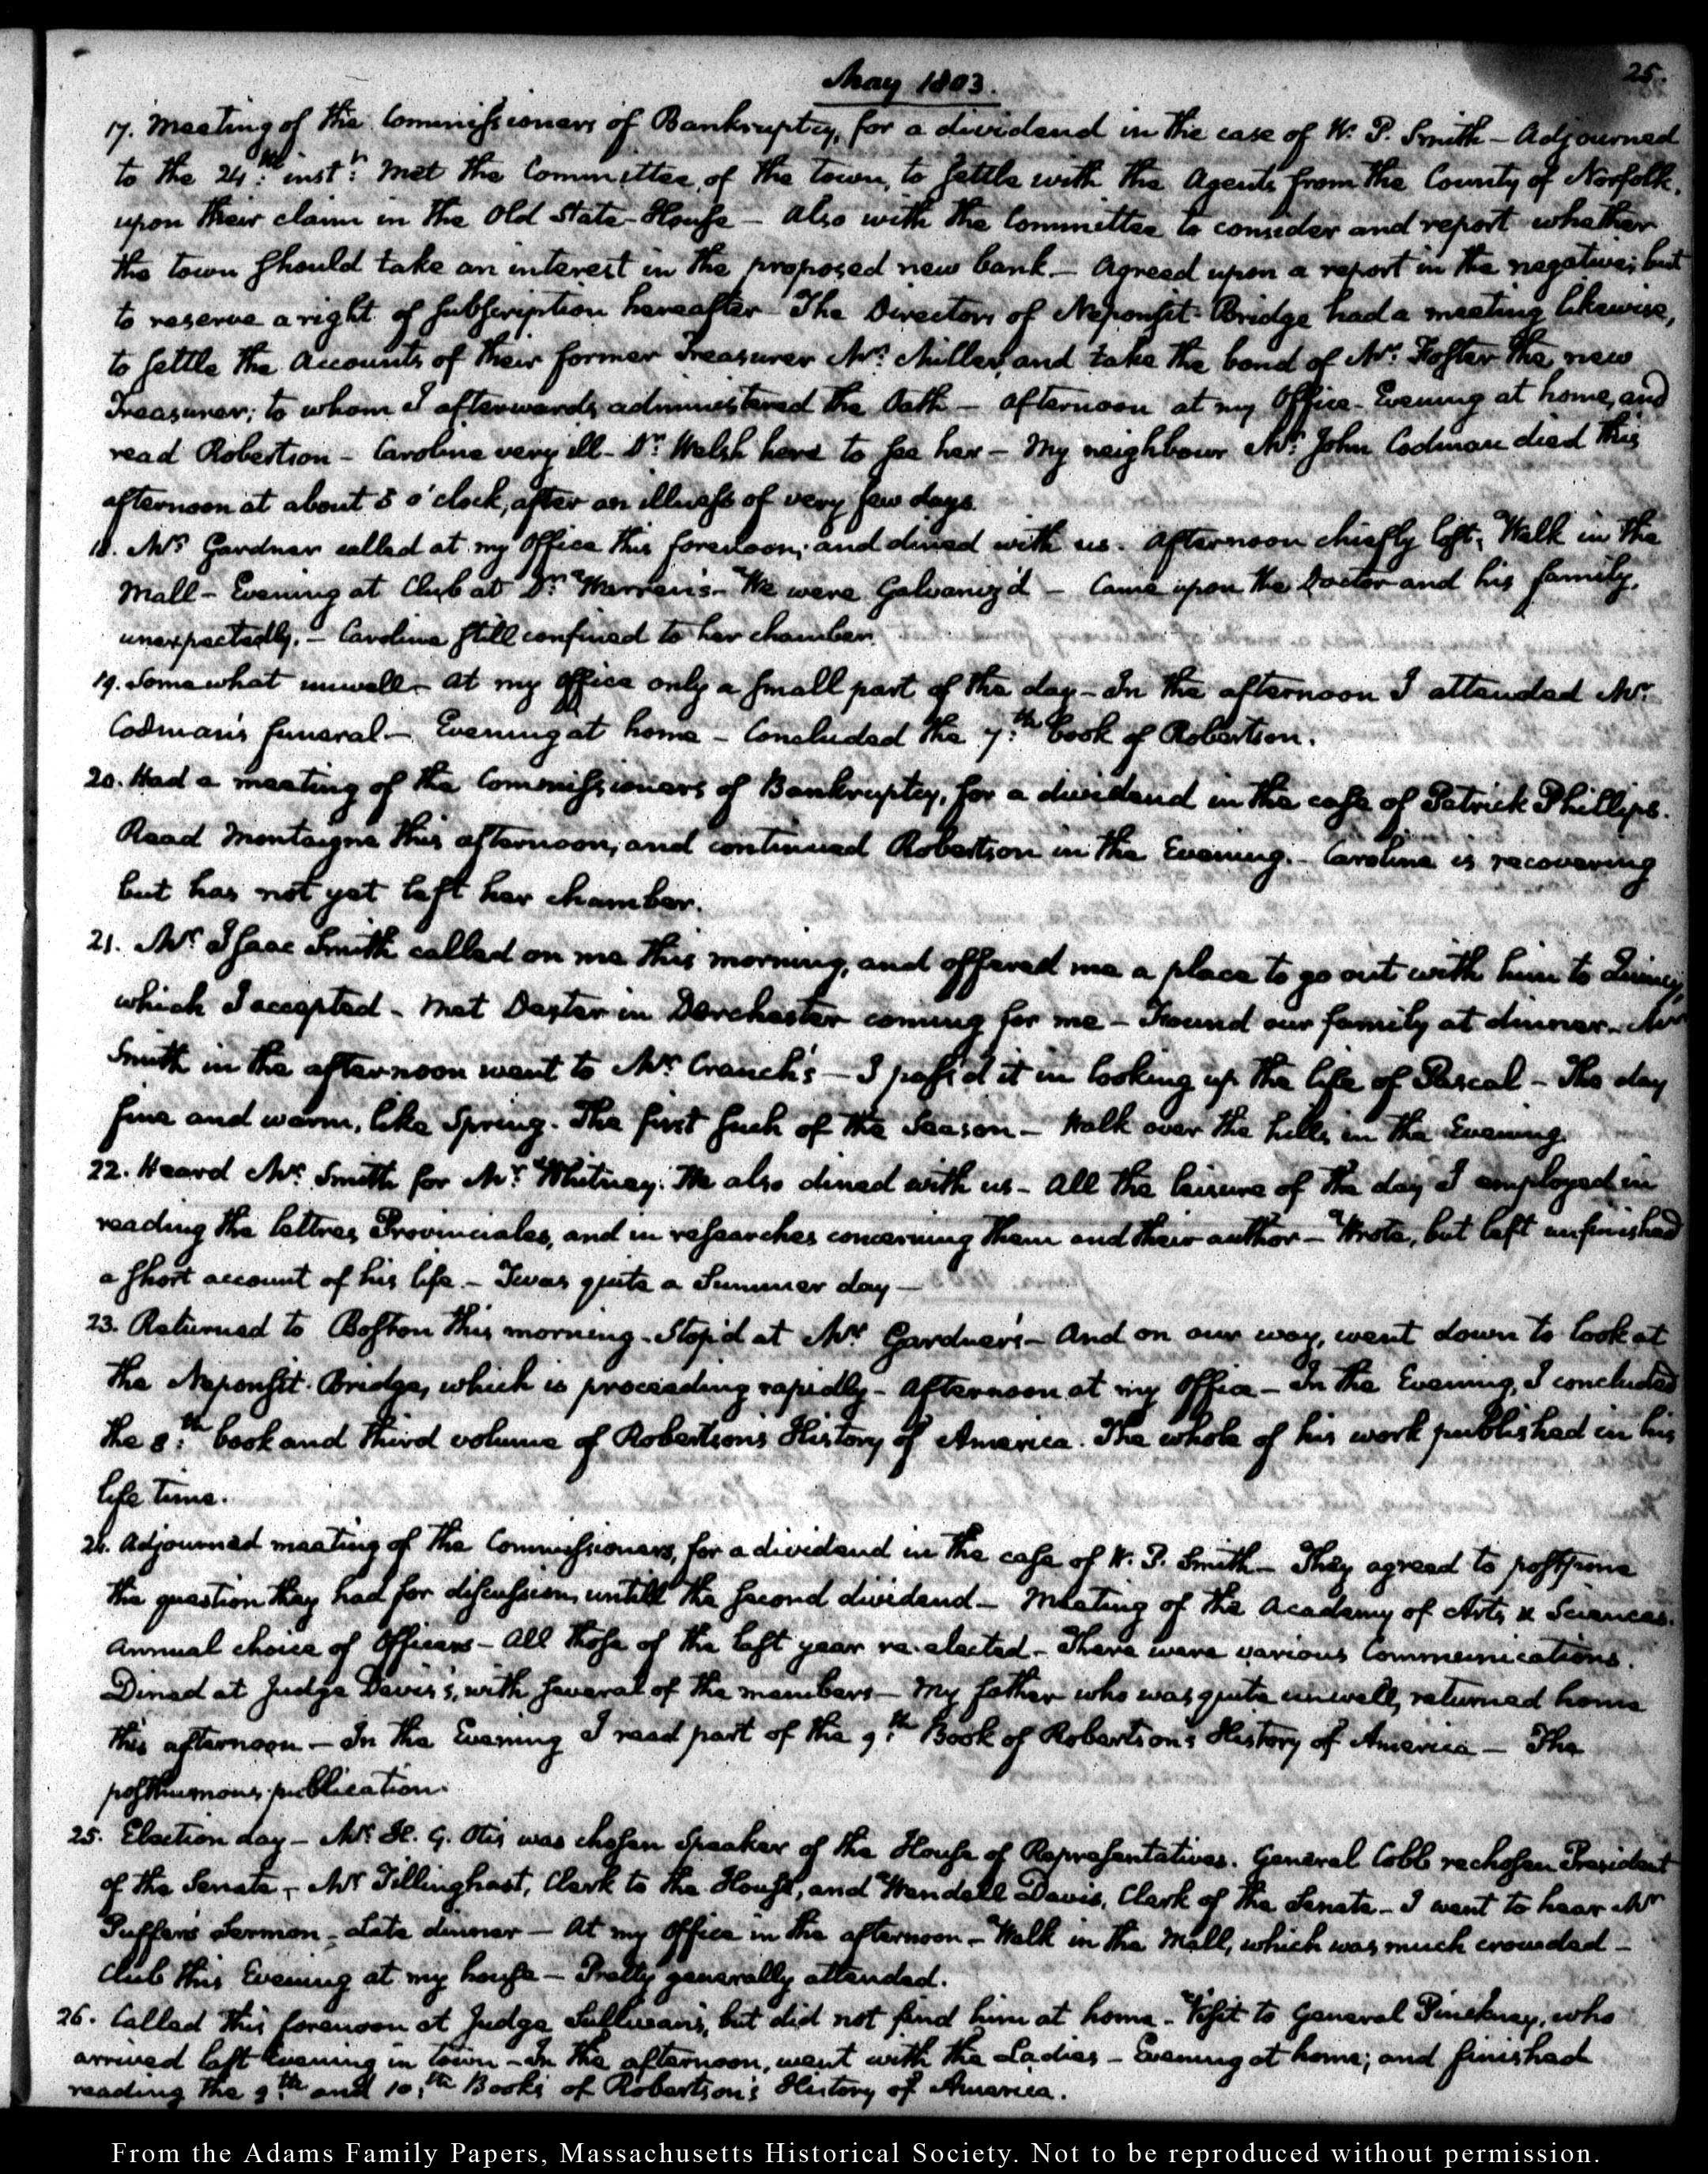 May 1803.
25.
17. Meeting of the Commissioners of Bankruptcy, for a dividend in the case of W. P. Smith — Adjourned
to the 24:th inst:t Met the Committee, of the town, to settle with the Agents from the County of Norfolk,
upon their claim in the Old State-House — Also with the Committee to consider and report whether
the town should take an interest in the proposed new bank. — Agreed upon a report in the negative; but
to reserve a right of subscription hereafter — The Directors of Neponsit-Bridge had a meeting likewise,
to settle the Accounts of their former Treasurer Mr: Miller, and take the bond of Mr: Foster the new
Treasurer; to whom I afterwards administered the Oath — Afternoon at my Office — Evening at home, and
read Robertson — Caroline very ill — Dr: Welsh here to see her — My neighbour Mr: John Codman died this
afternoon at about 5 o'clock, after an illness of very few days.
18. Mrs Gardner called at my Office this forenoon; and dined with us. Afternoon chiefly lost, Walk in the
Mall — Evening at Club at Dr: Warren's — We were Galvaniz'd — Came upon the Doctor and his family,
unexpectedly. — Caroline still confined to her chamber.
19. Somewhat unwell — At my Office only a small part of the day — In the afternoon I attended Mr:
Codman's funeral — Evening at home — Concluded the 7:th book of Robertson.
20. Had a meeting of the Commissioners of Bankruptcy, for a dividend in the case of Patrick Phillips.
Read Montaigne this afternoon; and continued Robertson in the Evening. — Caroline is recovering
but has not yet left her chamber.
21. Mr: Isaac Smith called on me this morning, and offered me a place to go out with him to Quincy,
which I accepted — Met Dexter in Dorchester coming for me — Found our family at dinner — Mr
Smith in the afternoon went to Mr: Cranch's — I pass'd it in looking up the life of Pascal — The day
fine and warm, like Spring. The first such of the Season — Walk over the hills in the Evening.
22. Heard Mr: Smith for Mr: Whitney. He also dined with us — All the leisure of the day I employed in
reading the lettres Provinciales, and in researches concerning them and their author — Wrote, but left unfinished
a short account of his life. — Twas quite a Summer day —
23. Returned to Boston this morning. Stop'd at Mrs Gardner's — And on our way, went down to look at
the Neponsit-Bridge, which is proceeding rapidly — Afternoon at my Office — In the Evening, I concluded
the 8:th book and third volume of Robertson's History of America. The whole of his work published in his
life time.
24. Adjourned meeting of the Commissioners, for a dividend in the case of W. P. Smith — They agreed to postpone
the question they had for discussion, untill the second dividend — Meeting of the Academy of Arts & Sciences.
Annual choice of Officers — All those of the last year re-elected — There were various Communications.
Dined at Judge Davis's, with several of the members — My father who was quite unwell, returned home
this afternoon — In the Evening I read part of the 9:th Book of Robertson's History of America — The
posthumous publication.
25. Election day — Mr: H. G. Otis was chosen Speaker of the House of Representatives. General Cobb rechosen President
of the Senate — Mr Tillinghast, Clerk to the House, and Wendell Davis, Clerk of the Senate — I went to hear Mr
Puffer's Sermon — Late dinner — At my Office in the afternoon — Walk in the Mall, which was much crowded —
Club this Evening at my house — Pretty generally attended.
26. Called this forenoon at Judge Sullivan's, but did not find him at home — Visit to General Pinckney, who
arrived last Evening in town — In the afternoon, went with the Ladies — Evening at home; and finished
reading the 9:th and 10:th Books of Robertson's History of America.
From the Adams Family Papers, Massachusetts Historical Society. Not to be reproduced without permission.